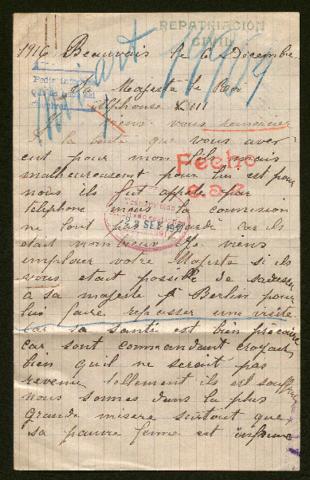 REPATRIACION
CIVIL
1916 Beauvais le 6 Décembre
Sa Majesté le Roi
Alphonse XIII
viens vous remercier
de la bonté que vous aver
eut pour mon fils mais
malheureusement pour lui et pour
nous ils fut appelé par
téléphone mais la comision
ne lont pas regardé car ils
etait nombreux Je viens
implorer votre Majesté si ils
vous etait possible de sadresser
a sa majesté Berlin pour
lui faire repasser une visite
car sa santé est bien précaire
car sont commandant croyait
bien qu'il ne serait pas
revenu tellement ils est souffrant
nous sommes dans la plus
grande misere surtout que
sa pauvre femme est infirme
Fecho